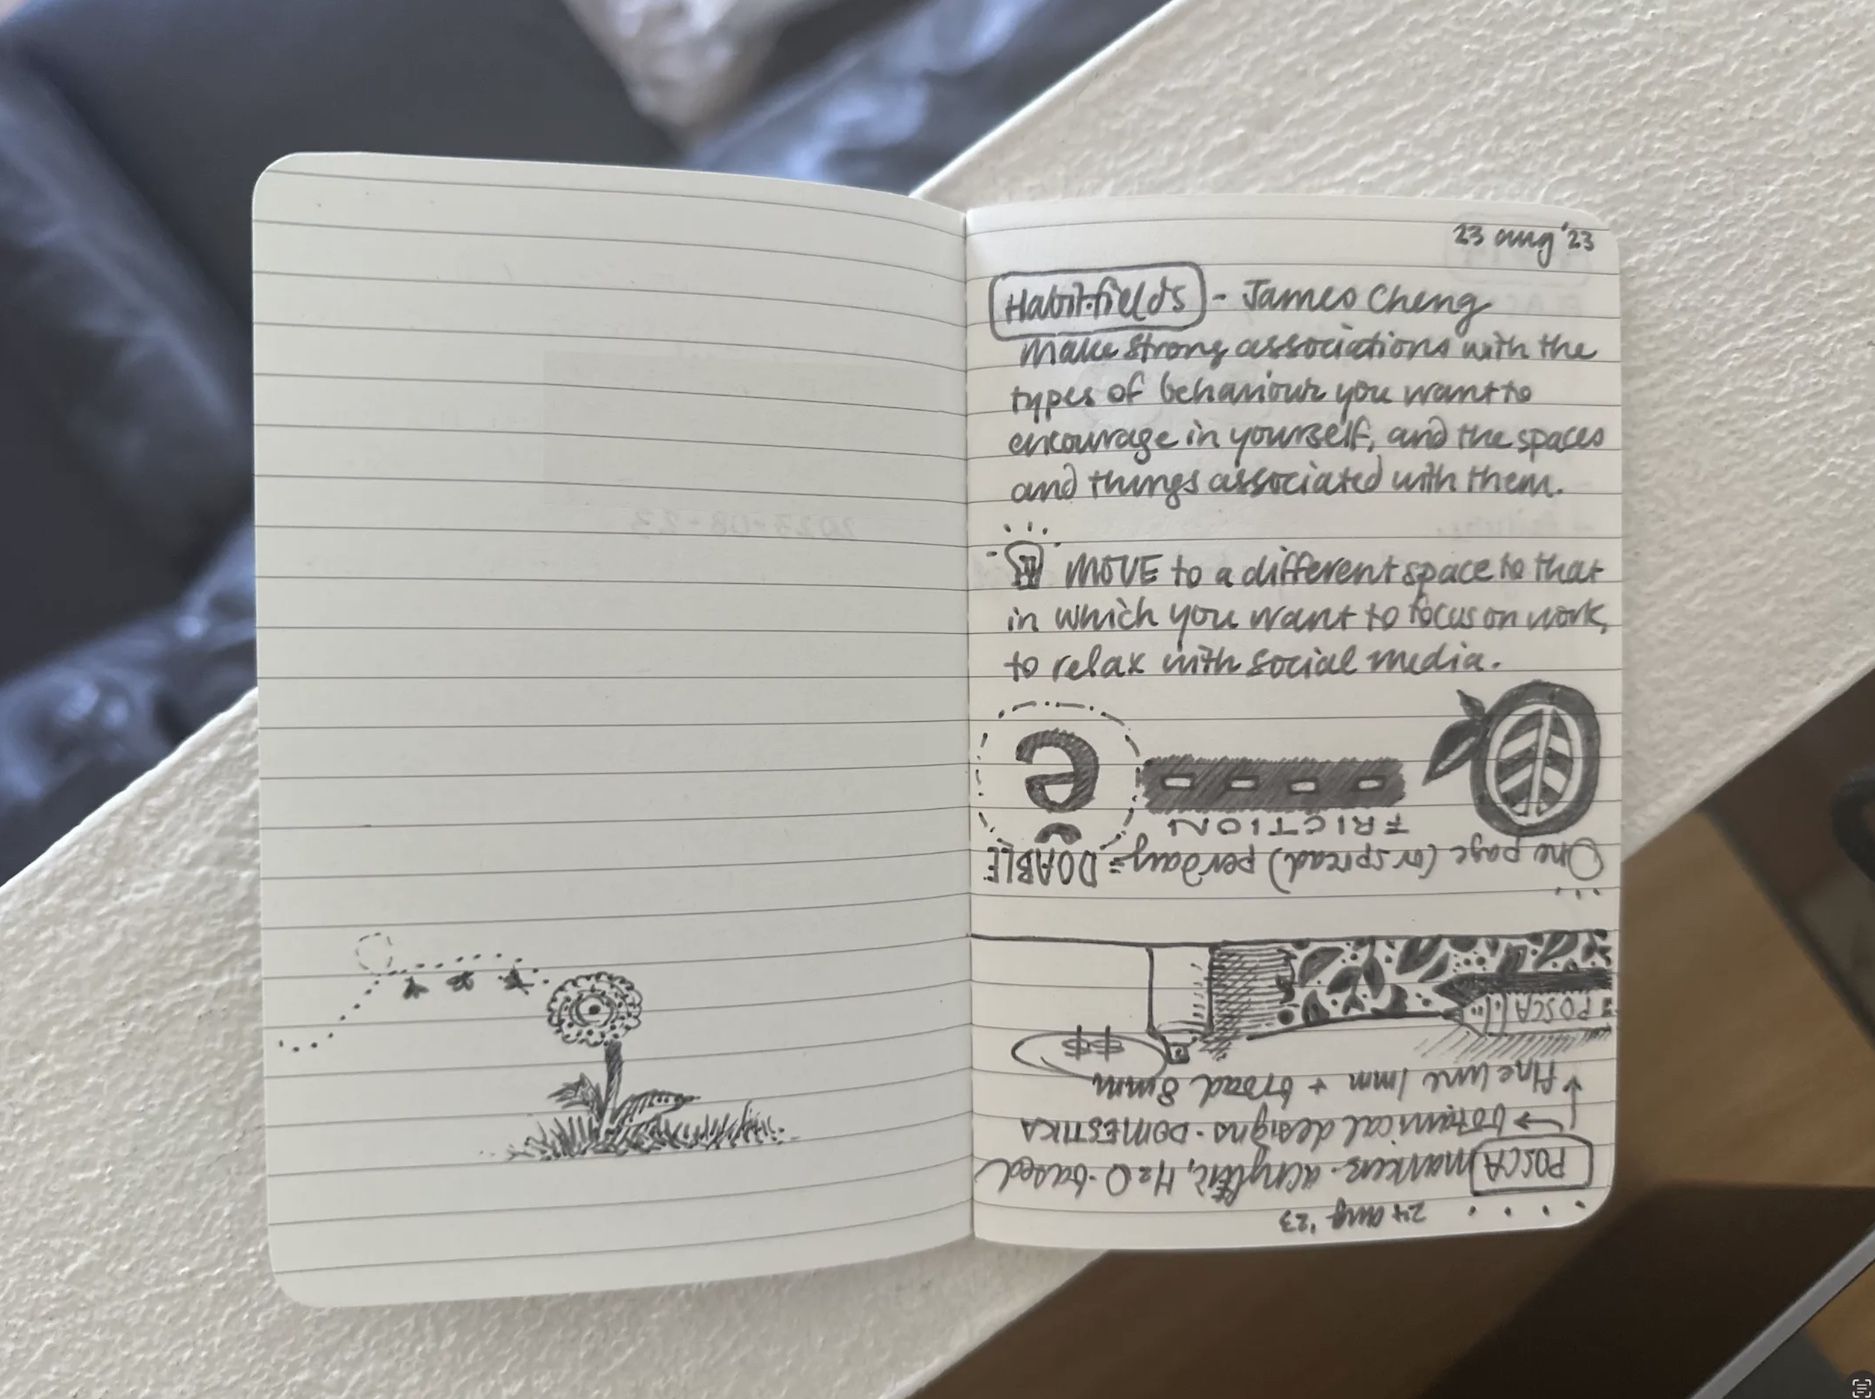 23 aug '23
Habit fields - James Cheng
Make strong associations with the
types of behaviour you want to
encourage in yourself, and the spaces
and things associated with them.
MOVE to a different space to that
in which you want to focus on work,
to relax with social media.
24 aug '23
POSCA markers - acrylic, H2O-based
→ botanical designs - DOMESTIKA
→ fine line 1mm + broad 8mm
$$
POSCA
One page (or spread) per day = DOABLE
FRICTION
e
2023-08-23